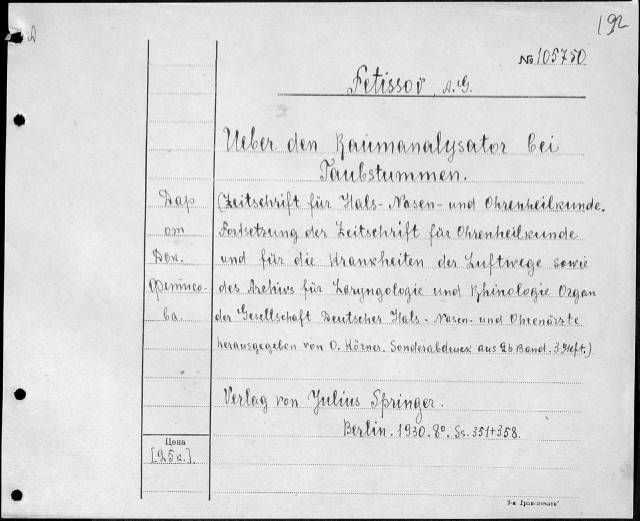 192
№ 105750
Fetissov, A.G.
Ueber den Raumanalysator bei
Taubstummen.
Дар
от
Док.
Фетисо-
ва.
(Zeitschrift für Hals-Nasen- und Ohrenheilkunde.
Fortsetzung der Zeitschrift für Ohrenheilkunde
und für die Krankheiten der Luftwege sowie
des Archivs für Laryngologie und Rhinologie Organ
der Gesellschaft Deutscher Hals-Nasen- und Ohrenärzte
herausgegeben von O. Körner. Sonderabdruck aus 26 Band. 3 Heft.)
Verlag von Julius Springer.
Berlin. 1930. 8°. Ss. 351+358.
Цена
[25к.].